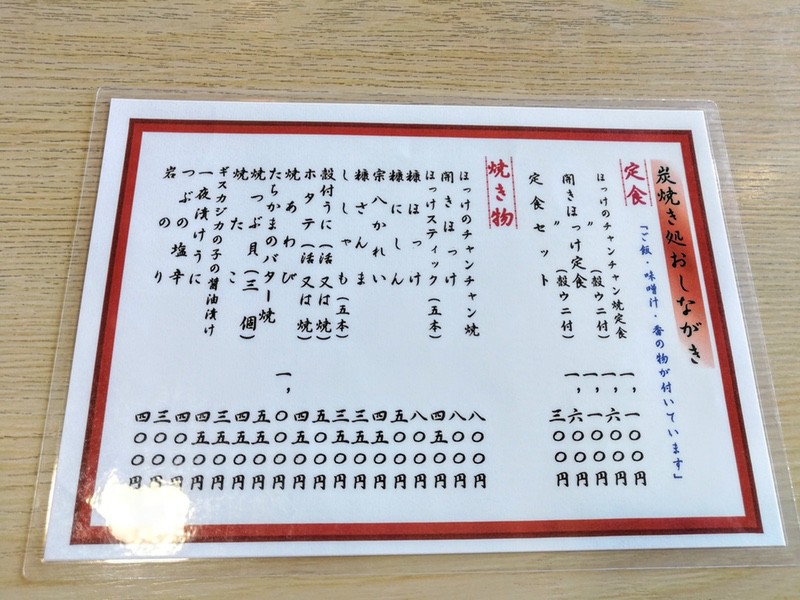 炭焼き処おしながき
定食
「ご飯・味噌汁・香の物が付いています」
ほっけのチャンチャン焼定食 一,一〇〇円
〃 (殻ウニ付) 一,六〇〇円
開きほっけ定食 一,一〇〇円
〃 (殻ウニ付) 一,六〇〇円
定食セット 三〇〇円
焼き物
ほっけのチャンチャン焼 八〇〇円
開きほっけ 八〇〇円
ほっけスティック(五本) 四五〇円
糠ほっけ 八〇〇円
糠にしん 五〇〇円
宗八かれい 四五〇円
糠さんま 三五〇円
ししゃも(五本) 三五〇円
殻付うに(活又は焼) 五〇〇円
ホタテ(活又は焼) 四五〇円
焼あわび 一,〇〇〇円
たらかまのバター焼 五五〇円
焼つぶ貝(三個) 四五〇円
焼たこ 三五〇円
ギスカジカの子の醤油漬け 四五〇円
一夜漬けうに 四〇〇円
つぶの塩辛 三〇〇円
岩のり 四〇〇円